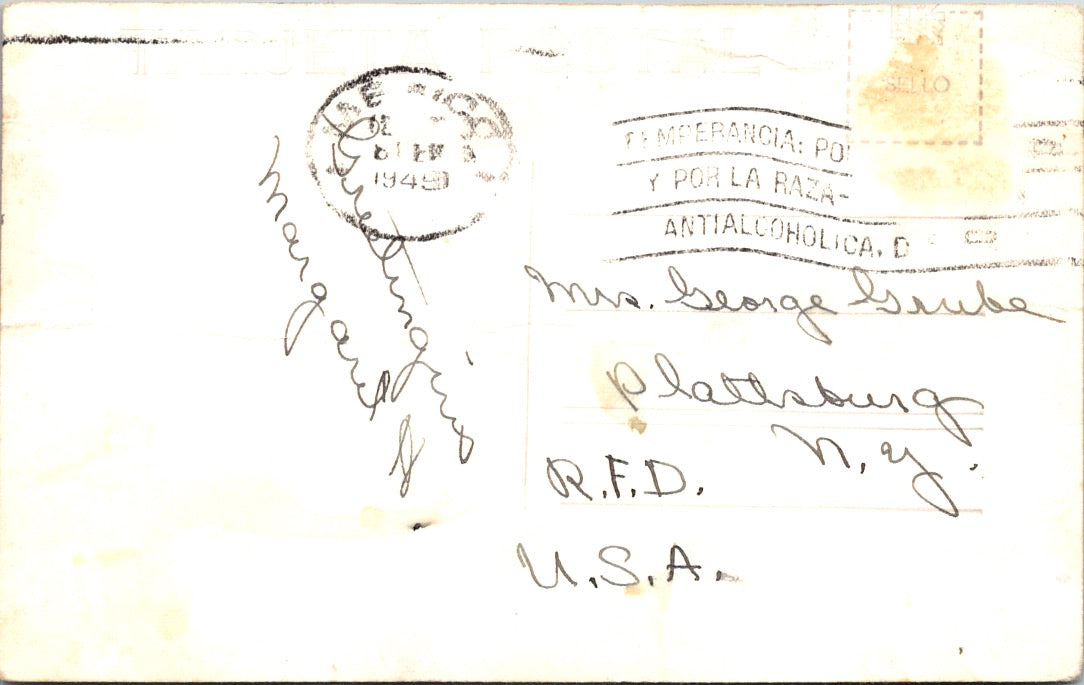 TARJETA POSTAL
SELLO
MEXICO
1949
TEMPERANCIA: PO
Y POR LA RAZA-
ANTIALCOHOLICA, D
Greetings
Margaret
Mrs. George Grube
Plattsburg
N. Y.
R.F.D.
U.S.A.